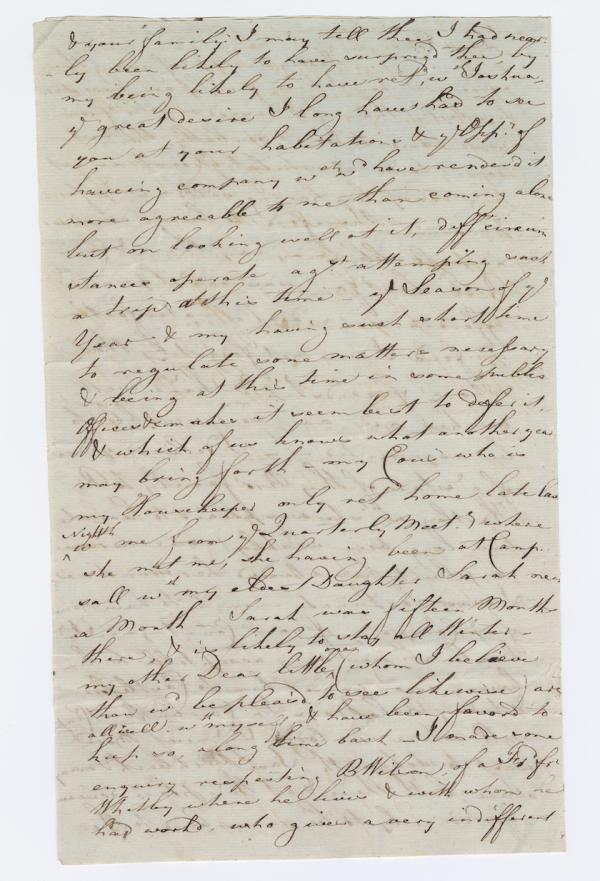 & your family. I may tell thee I had near-
ly been likely to have surprized thee, by
my being likely to have ret.d w.th Joshua,
y.e great desire I long have had to see
you at your habitations & y.e Opp.y of
haveing company w.ch w.d have renderd it
more agreeable to me than coming alone
but on looking well at it, diff.t circum
stances operate ag.st attempting such
a trip at this time y.e Season of y.e
Year & my having such short time
to regulate some matters necessary
& being at this time in some publick
Offices &c makes it seem best to defer it,
& which of us knows what another year
may bring forth - my Cous.n who is
my Housekeeper only ret.d home late last
Night w.th me from y.e Quarterly Meet.g where
she met me, she having been at Camp-
sall w.th my elder Daughter Sarah near
a Month - Sarah was fifteen Months
there, & is likely to stay all Winter -
my other Dear little ones (whom I believe
thou w.d be pleased to see likewise) are
all well w.th myself & have been favord to
keep so, along time back - I made some
enquiry respecting B Wilson, of a F.d fr.
Whitby where he lives & with whom he
had workd, who gives a very indifferent